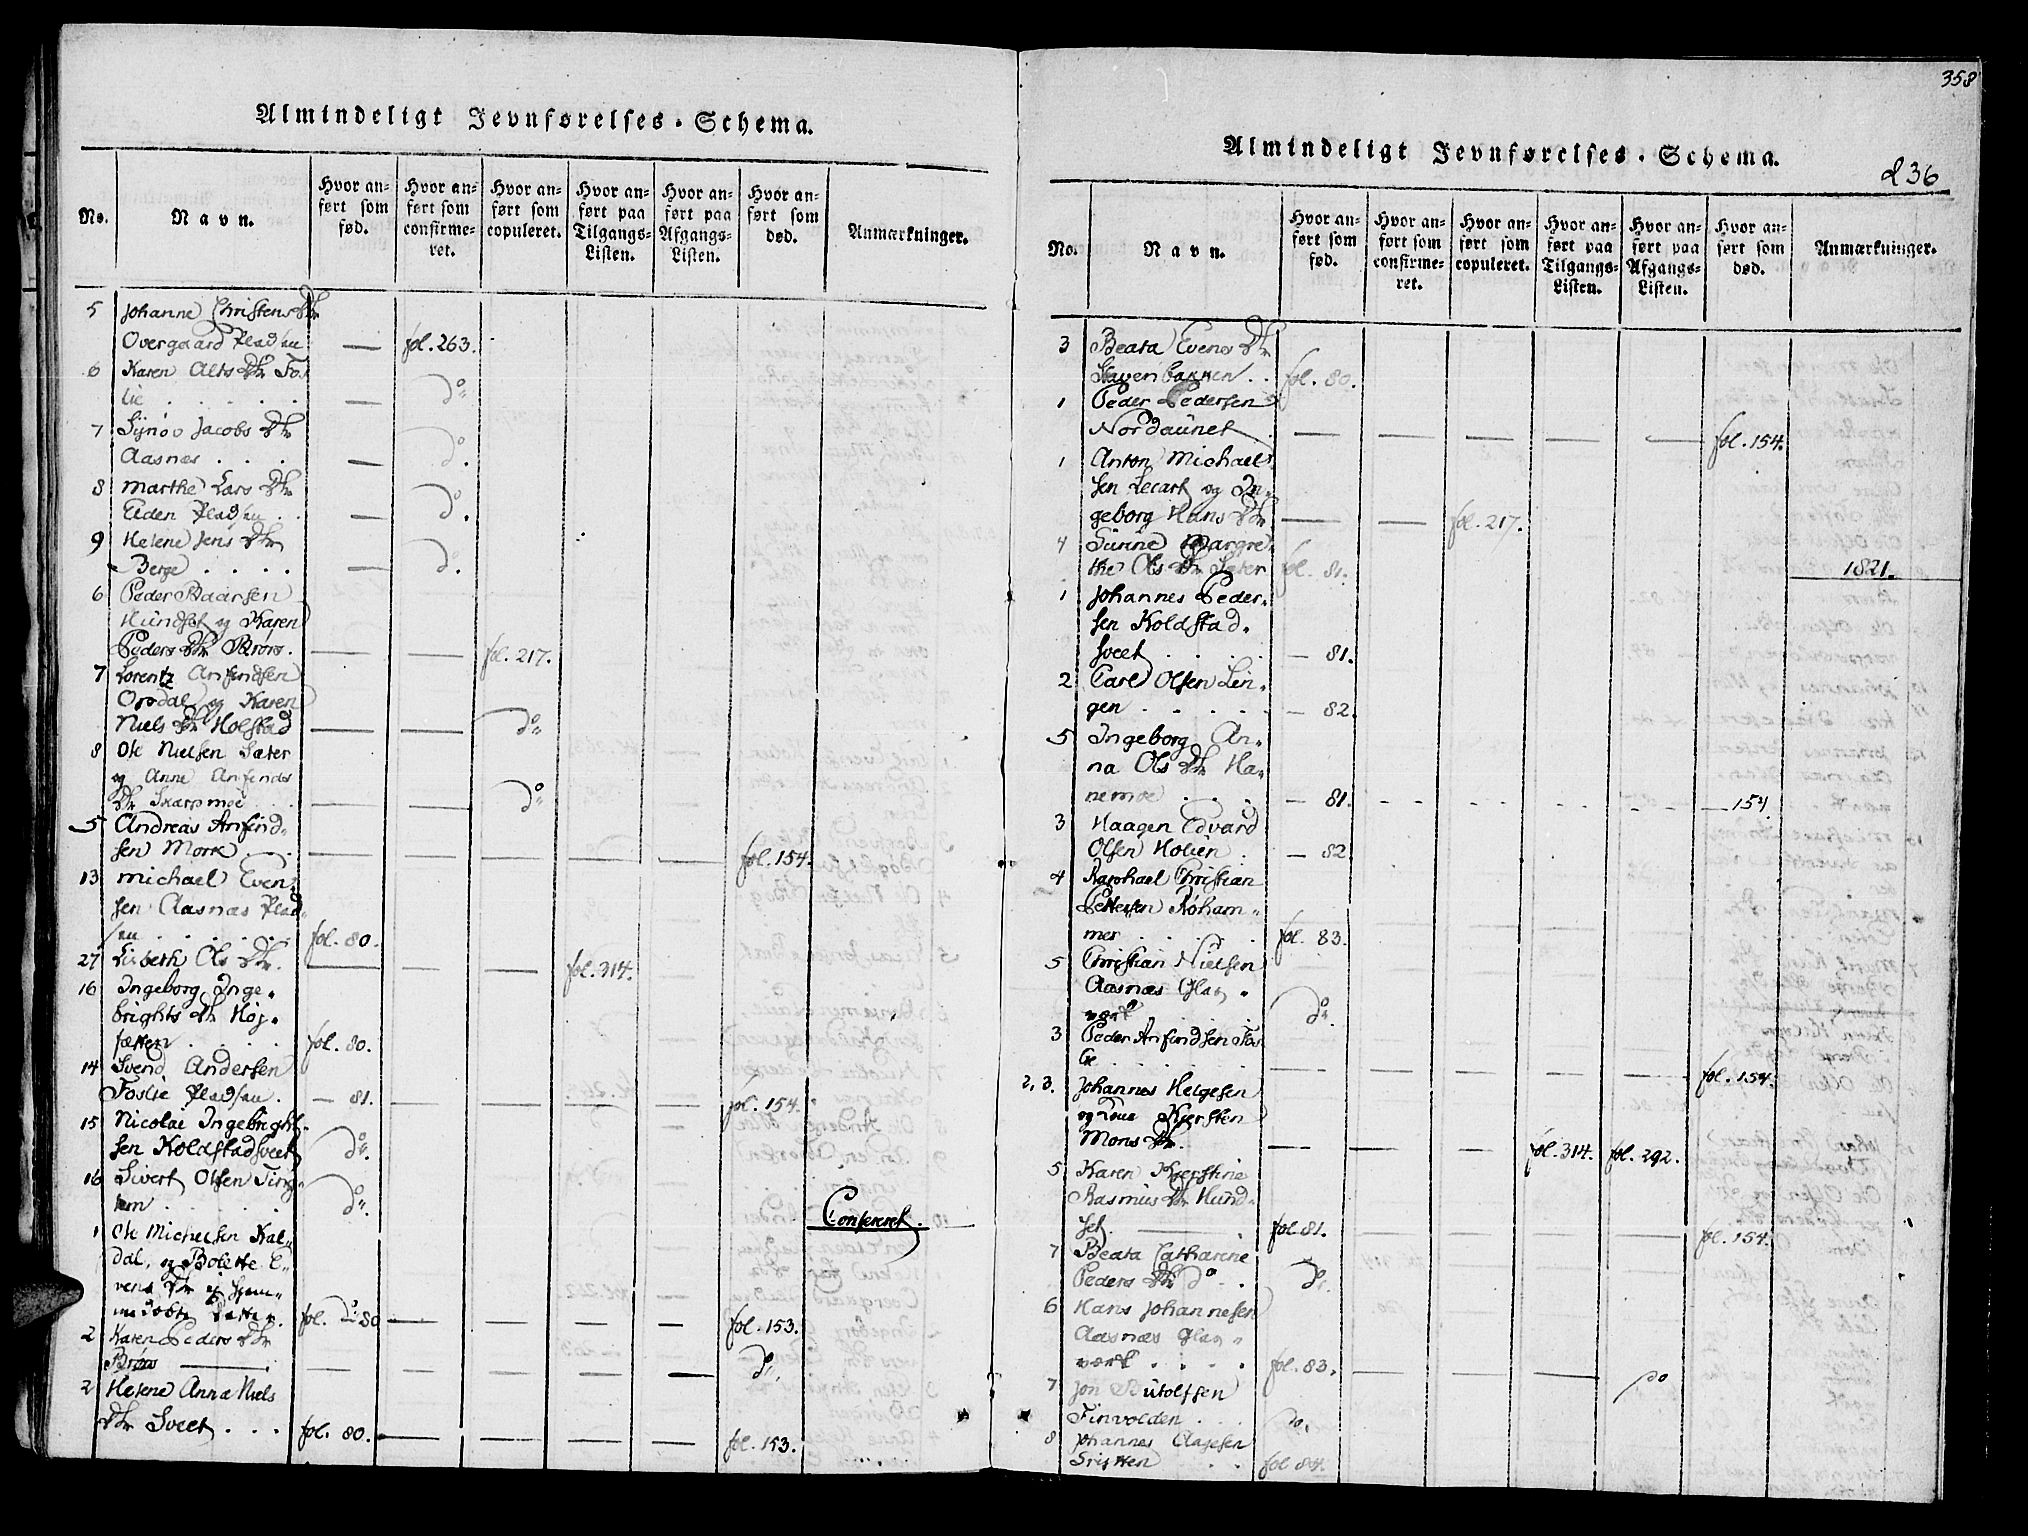 Almindeligt Jevnførelses-Schema.
No. Navn. Hvor anført som fød. Hvor anført som confirmeret. Hvor anført som copuleret. Hvor anført paa Tilgangs-Listen. Hvor anført paa Afgangs-Listen. Hvor anført som død. Anmærkninger.
5 Johanne Christens Dtr
Overgaard Pladsen — fol. 263.
6 Karen Alts Dtr Fos
lie . . . . . — do
7 Synøv Jacobs Dtr
Aasnæs . . . — do.
8 Marthe Lars Dtr
Eiden Pladsen . . — do.
9 Helene Jens Dtr
Berge . . . . — do.
6 Peder Baarsen
Hundset og Karen
Peders Dtr Brørs. — — fol. 217.
7 Lorentz Anfindsen
Opdal og Karen
Niels Dtr Holstad — — do
8 Ole Nielsen Sæter
og Anne Anfinds
Dtr Skarpmoe . . — — do
5 Andreas Anfind-
sen Mork — — — — — fol. 154.
13 Michael Even-
sen Aasnæs Plad-
sen . . . . . fol. 80.
27 Lisbeth Ols Dtr. — — — fol. 314. —
16 Ingeborg Inge-
brights Dtr Høj-
sætten . . . . fol. 80.
14 Svend Andersen
Foslie Pladsen . — 81. — — — — fol. 154.
15 Nicolai Ingebright-
sen Koldstadsveet do.
16 Sivert Olsen Ting-
tem . . . . . do.
Confereret.
1 Ole Michelsen Kal-
dal, og Bolette E-
vens Dtr ej hjem-
medøbte Datter. fol. 80 — — — — fol. 153.
2 Karen Peders Dtr
Brøns — — — — — do.
2 Helene Anna Niels
Dtr Sveet . . . fol. 80. — — — — fol. 153.
358
Almindeligt Jevnførelses-Schema.
236
No. Navn. Hvor anført som fød. Hvor anført som confirmeret. Hvor anført som copuleret. Hvor anført paa Tilgangs-Listen. Hvor anført paa Afgangs-Listen. Hvor anført som død. Anmærkninger.
3 Beata Evens Dtr
Stavenbakken . . fol. 80.
1 Peder Pedersen
Nordaunet . — — — — — fol. 154.
1 Anton Michael-
sen Lecart og In-
geborg Hans Dtr — — fol. 217.
4 Sünne Margre-
the Ols Dtr Sæter fol. 81.
1821.
1 Johannes Peder-
sen Koldstad-
sveet . . . . — 81.
2 Carl Olsen Lin-
gen . . . . . — 82.
5 Ingeborg An-
na Ols Dtr Ha-
nemoe . . . — 81. - - - - - — 154.
3 Haagen Edvard
Olsen Holien . — 82
4 Raphael Christian
Pettersen Røham-
mer . . . . . fol. 83.
5 Christian Nielsen
Aasnæs Glas-
værk do.
3 Peder Anfindsen Fos
lie . . . . . — — — — — fol. 154.
2, 3. Johannes Helgesen
og Kone Kjersten
Mons Dtr. — — — fol. 314. fol. 292. —
5 Karen Kjerstine
Rasmus Dtr Hund-
set. fol. 81. — — — — fol. 154.
7 Beata Catharine
Peders Dtr do . . do.
6 Hans Johannesen
Aasnæs Glas-
værk . . . . fol. 83. — — — do
7 Jon Rutolfsen
Finvolden . . . do.
8 Johannes Clasesen
Tristten . . fol 84.